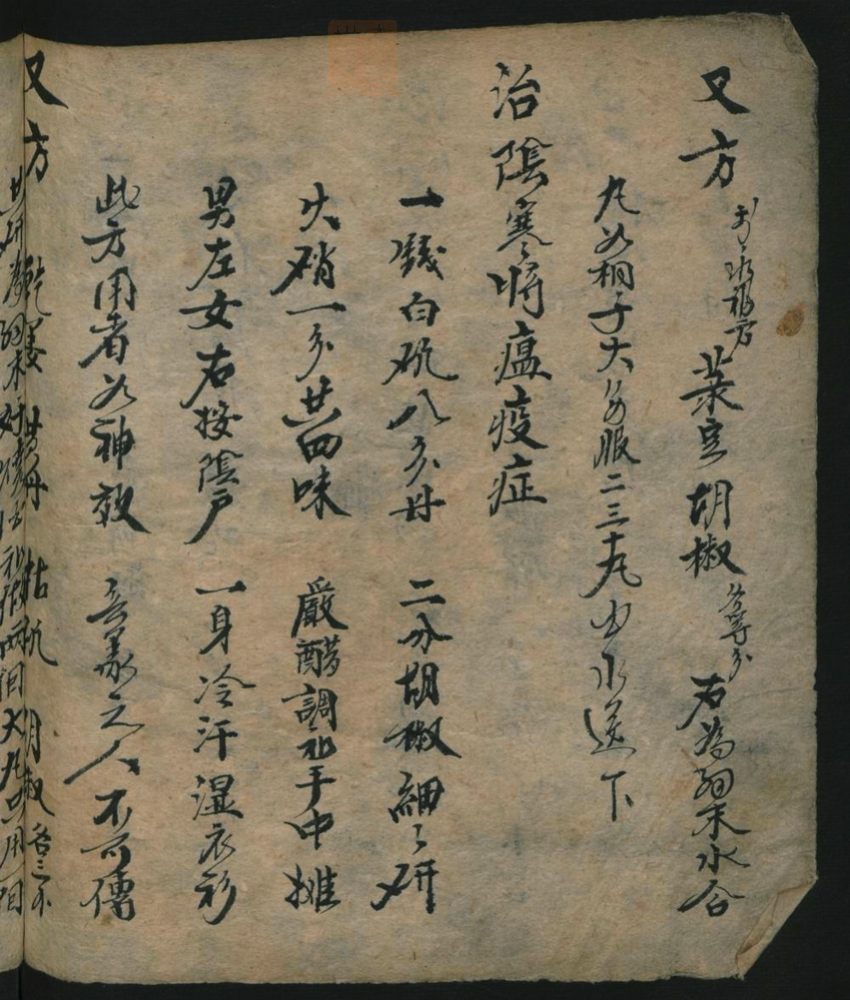 又方 菉豆胡椒各等分右為細末水合
丸如桐子大每服二三十丸白水送下
治陰寒將瘟疫症
一錢白矾八分丹 二分胡椒細々研
火硝一分共四味 嚴醋調和手中摊
男左女右按陰户 一身冷汗湿衣衫
此方用者如神效 之人不可傳
又方 乾姜 黄丹 枯矾 胡椒各三不